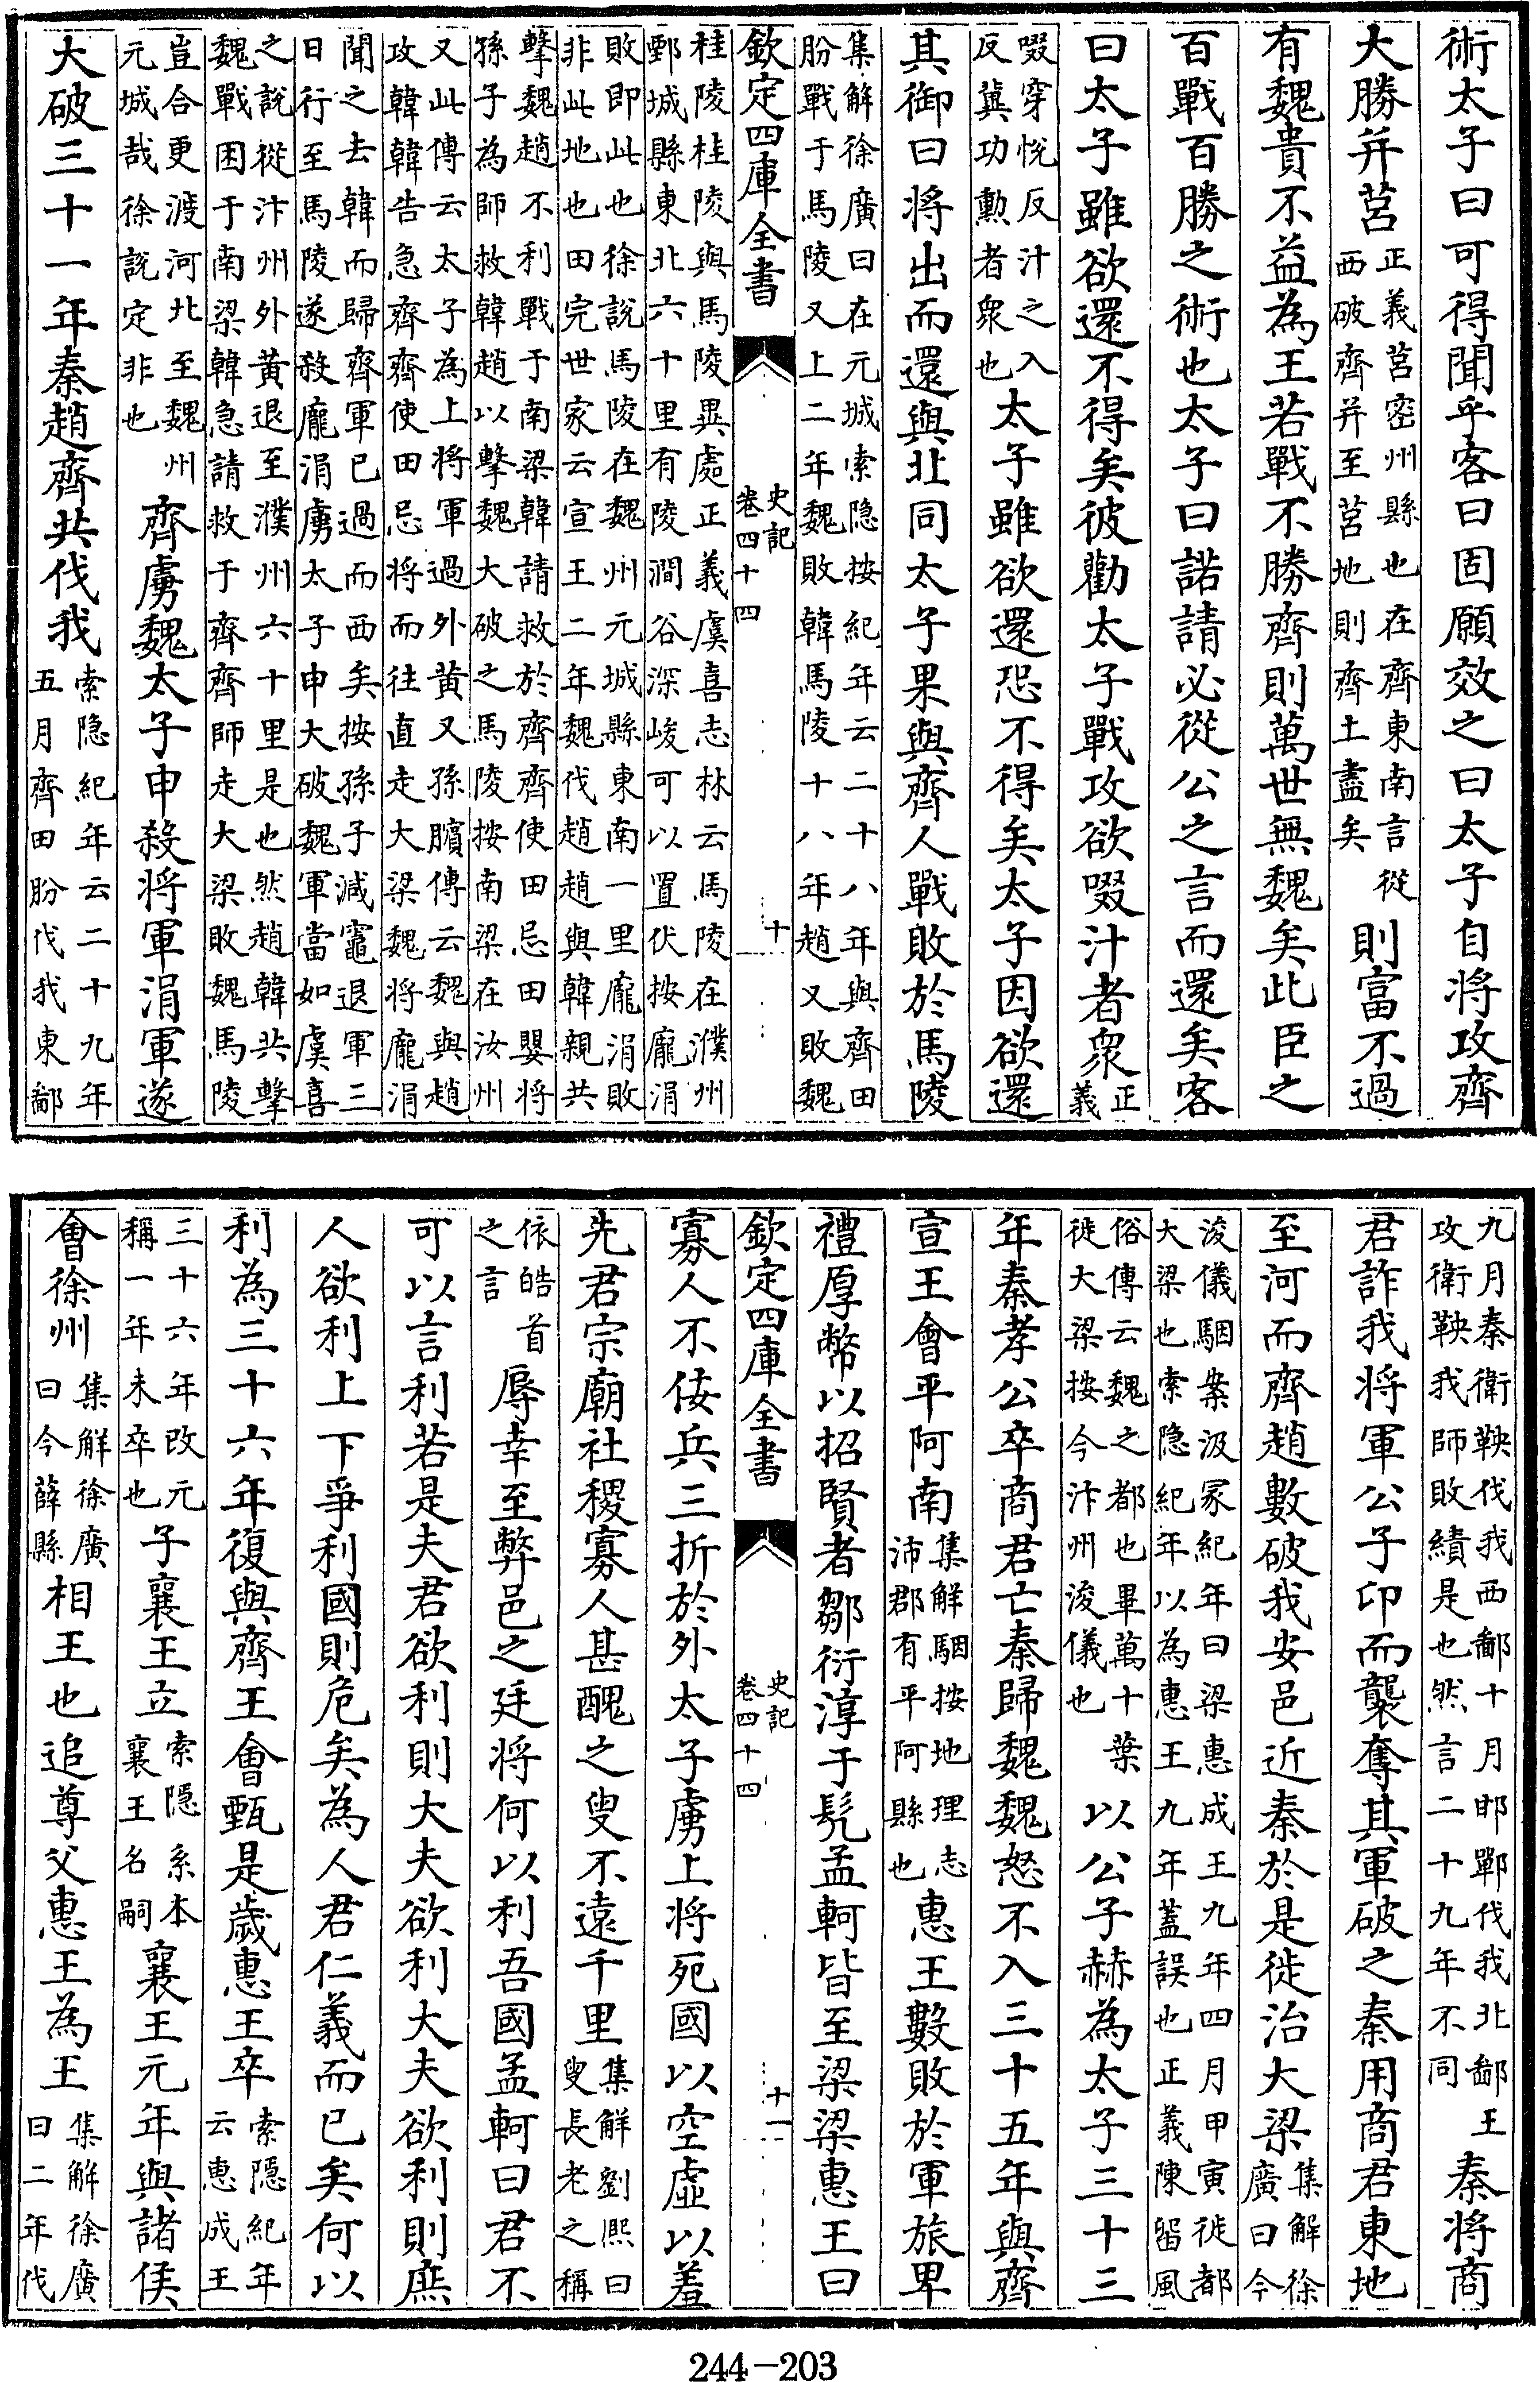 術太子曰可得聞乎客曰固願效之曰太子自将攻齊
大勝并莒正義莒密州縣也在齊東南言從西破齊并至莒地則齊土盡矣則富不過
有魏貴不益為王若戰不勝齊則萬世無魏矣此臣之
百戰百勝之術也太子曰諾請必從公之言而還矣客
曰太子雖欲還不得矣彼勸太子戰攻欲啜汁者衆正義
啜穿恱反汁之入反冀功勲者衆也太子雖欲還恐不得矣太子因欲還
其御曰将出而還與北同太子果與齊人戰敗於馬陵
集解徐廣曰在元城索隐按紀年云二十八年與齊田肦戰于馬陵又上二年魏敗韓馬陵十八年趙又敗魏
欽定四庫全書 史記卷四十四 十
桂陵桂陵與馬陵異處正義虞喜志林云馬陵在濮州鄄城縣東北六十里有陵澗谷深峻可以置伏按龐涓
敗即此也徐說馬陵在魏州元城縣東南一里龐涓敗非此地也田完世家云宣王二年魏伐趙趙與韓親共
擊魏趙不利戰于南梁韓請救於齊齊使田忌田嬰将孫子為師救韓趙以擊魏大破之馬陵按南梁在汝州
又此傳云太子為上将軍過外黃又孫臏傳云魏與趙攻韓韓告急齊齊使田忌将而往直走大梁魏将龐涓
聞之去韓而歸齊軍已過而西矣按孫子減竈退軍三日行至馬陵遂殺龐涓虜太子申大破魏軍當如虞喜
之說從汴州外黃退至濮州六十里是也然趙韓共擊魏戰困于南梁韓急請救于齊齊師走大梁敗魏馬陵
豈合更渡河北至魏州元城哉徐說定非也齊虜魏太子申殺将軍涓軍遂
大破三十一年秦趙齊共伐我索隐紀年云二十九年五月齊田肦伐我東鄙
九月秦衛鞅伐我西鄙十月邯鄲伐我北鄙王攻衛鞅我師敗績是也然言二十九年不同秦将商
君詐我将軍公子卬而襲奪其軍破之秦用商君東地
至河而齊趙數破我安邑近秦於是徙治大梁集解徐廣曰今
浚儀駰案汲冢紀年曰梁惠成王九年四月甲寅徙都大梁也索隐紀年以為惠王九年蓋誤也正義陳留風
俗傳云魏之都也畢萬十葉徙大梁按今汴州浚儀也以公子赫為太子三十三
年秦孝公卒商君亡秦歸魏魏怒不入三十五年與齊
宣王會平阿南集解駰按地理志沛郡有平阿縣也惠王數敗於軍旅卑
禮厚幣以招賢者鄒衍淳于髡孟軻皆至梁梁惠王曰
欽定四庫全書 史記卷四十四 十一
寡人不佞兵三折於外太子虜上将死國以空虛以羞
先君宗廟社稷寡人甚醜之叟不遠千里集解劉熙曰叟長老之稱
依皓首之言辱幸至弊邑之廷将何以利吾國孟軻曰君不
可以言利若是夫君欲利則大夫欲利大夫欲利則庶
人欲利上下爭利國則危矣為人君仁義而已矣何以
利為三十六年復與齊王會甄是歲惠王卒索隠紀年云惠成王
三十六年改元稱一年未卒也子襄王立索隠系本襄王名嗣襄王元年與諸侯
會徐州集解徐廣曰今薛縣相王也追尊父惠王為王集解徐廣曰二年伐
244-203